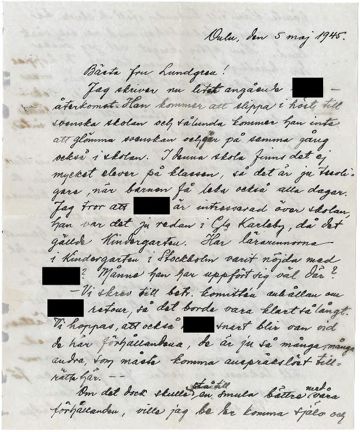 Oulu, den 5 maj 1945.
Bästa fru Lundgren!
Jag skriver nu litet angående
återkomst. Han kommer att slippa i höst till
svenska skolan och sålunda kommer han inte
att glömma svenskan och är på samma gång
också i skolan. I denna skola finns det ej
mycket elever på klassen, så det är ju trevli-
gare, när barnen få leka också alla dagar.
Jag tror att är intresserad över skolan,
han var det ju redan i Gla Karleby, då det
gällde Kindergarten. Har lärarinnorna
i Kindergarten i Stockholm varit nöjda med
? Månne han har uppfört sig väl där?
– Vi skrev till betr. komitén anhållan om
retour, så det borde vara klart så långt.
Vi hoppas, att också snart blir van vid
de nya förhållandena, de är ju så många många
andra, som måste komma anspråkslöst till-
rätta här. —
Om det dock skulle stå till en smula bättre med våra
förhållanden, ville jag be Er komma själv och